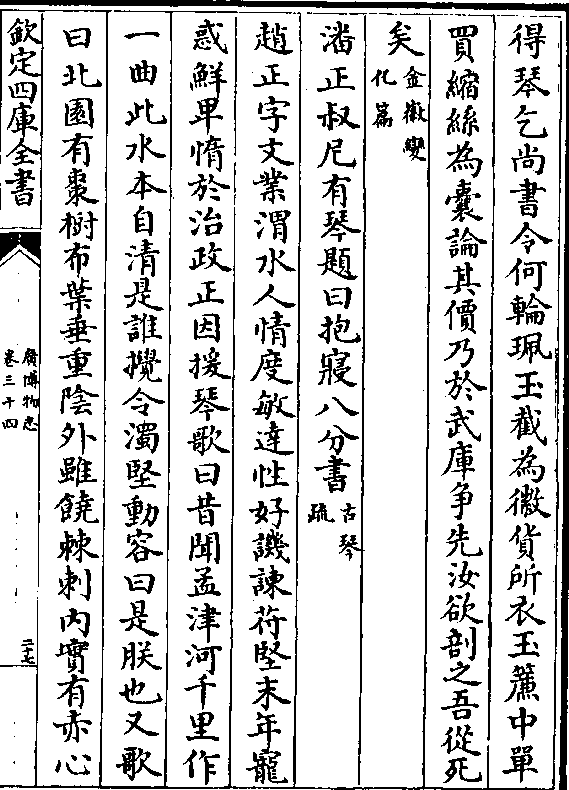 得琴乞尚書令何輪珮玉截為徽貨所衣玉簾中單
買縮絲為囊論其價乃於武庫争先汝欲剖之吾從死
矣金徽變
化篇
潘正叔尼有琴題曰抱寢八分書古琴
疏
趙正字文業渭水人情度敏達性好譏諫苻堅末年寵
惑鮮卑惰於治政正因援琴歌曰昔聞孟津河千里作
一曲此水本自清是誰攪令濁堅動容曰是朕也又歌
曰北園有棗樹布葉垂重陰外雖饒棘刺内實有赤心
欽定四庫全書
廣博物志
卷三十四
二十七